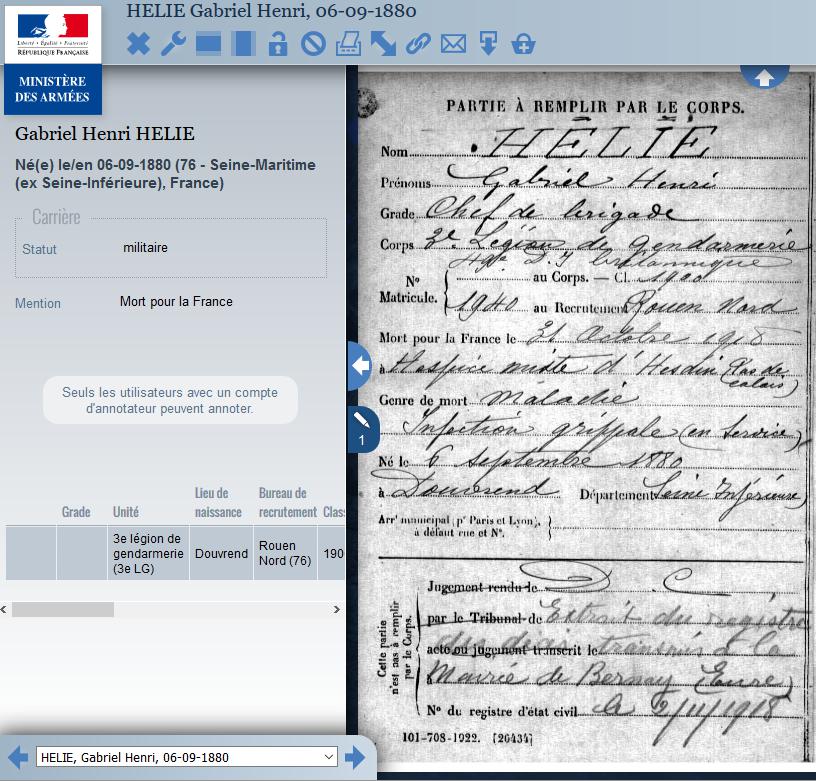 HELIE Gabriel Henri, 06-09-1880
Liberté • Égalité • Fraternité
RÉPUBLIQUE FRANÇAISE
MINISTÈRE
DES ARMÉES
Gabriel Henri HELIE
Né(e) le/en 06-09-1880 (76 - Seine-Maritime
(ex Seine-Inférieure), France)
Carrière
Statut militaire
Mention Mort pour la France
Seuls les utilisateurs avec un compte
d'annotateur peuvent annoter.
Grade Unité Lieu de naissance Bureau de recrutement Clas
3e légion de gendarmerie (3e LG) Douvrend Rouen Nord (76) 190
HELIE, Gabriel Henri, 06-09-1880
1
PARTIE À REMPLIR PAR LE CORPS.
Nom HÉLIE
Prénoms Gabriel Henri
Grade Chef de brigade
Corps 3e Légion de Gendarmerie
D. I britannique
N° Matricule. { au Corps. — Cl. 1900
1940 au Recrutement Rouen Nord
Mort pour la France le 31 Octobre 1918
à Hospice mixte d'Hesdin (Pas de calais)
Genre de mort Maladie
Infection grippale (en service)
Né le 6 Septembre 1880
à Douvrend Département Seine Inférieure
Arr' municipal (p' Paris et Lyon),
à défaut rue et N°.
Cette partie n'est pas à remplir par le Corps.
Jugement rendu le D. C.
par le Tribunal de Extrait du registre
des décès
acte ou jugement transcrit le transmis à la
à Mairie de Bernay (Eure)
N° du registre d'état civil le 2/11/1918
101-708-1922. [26434]